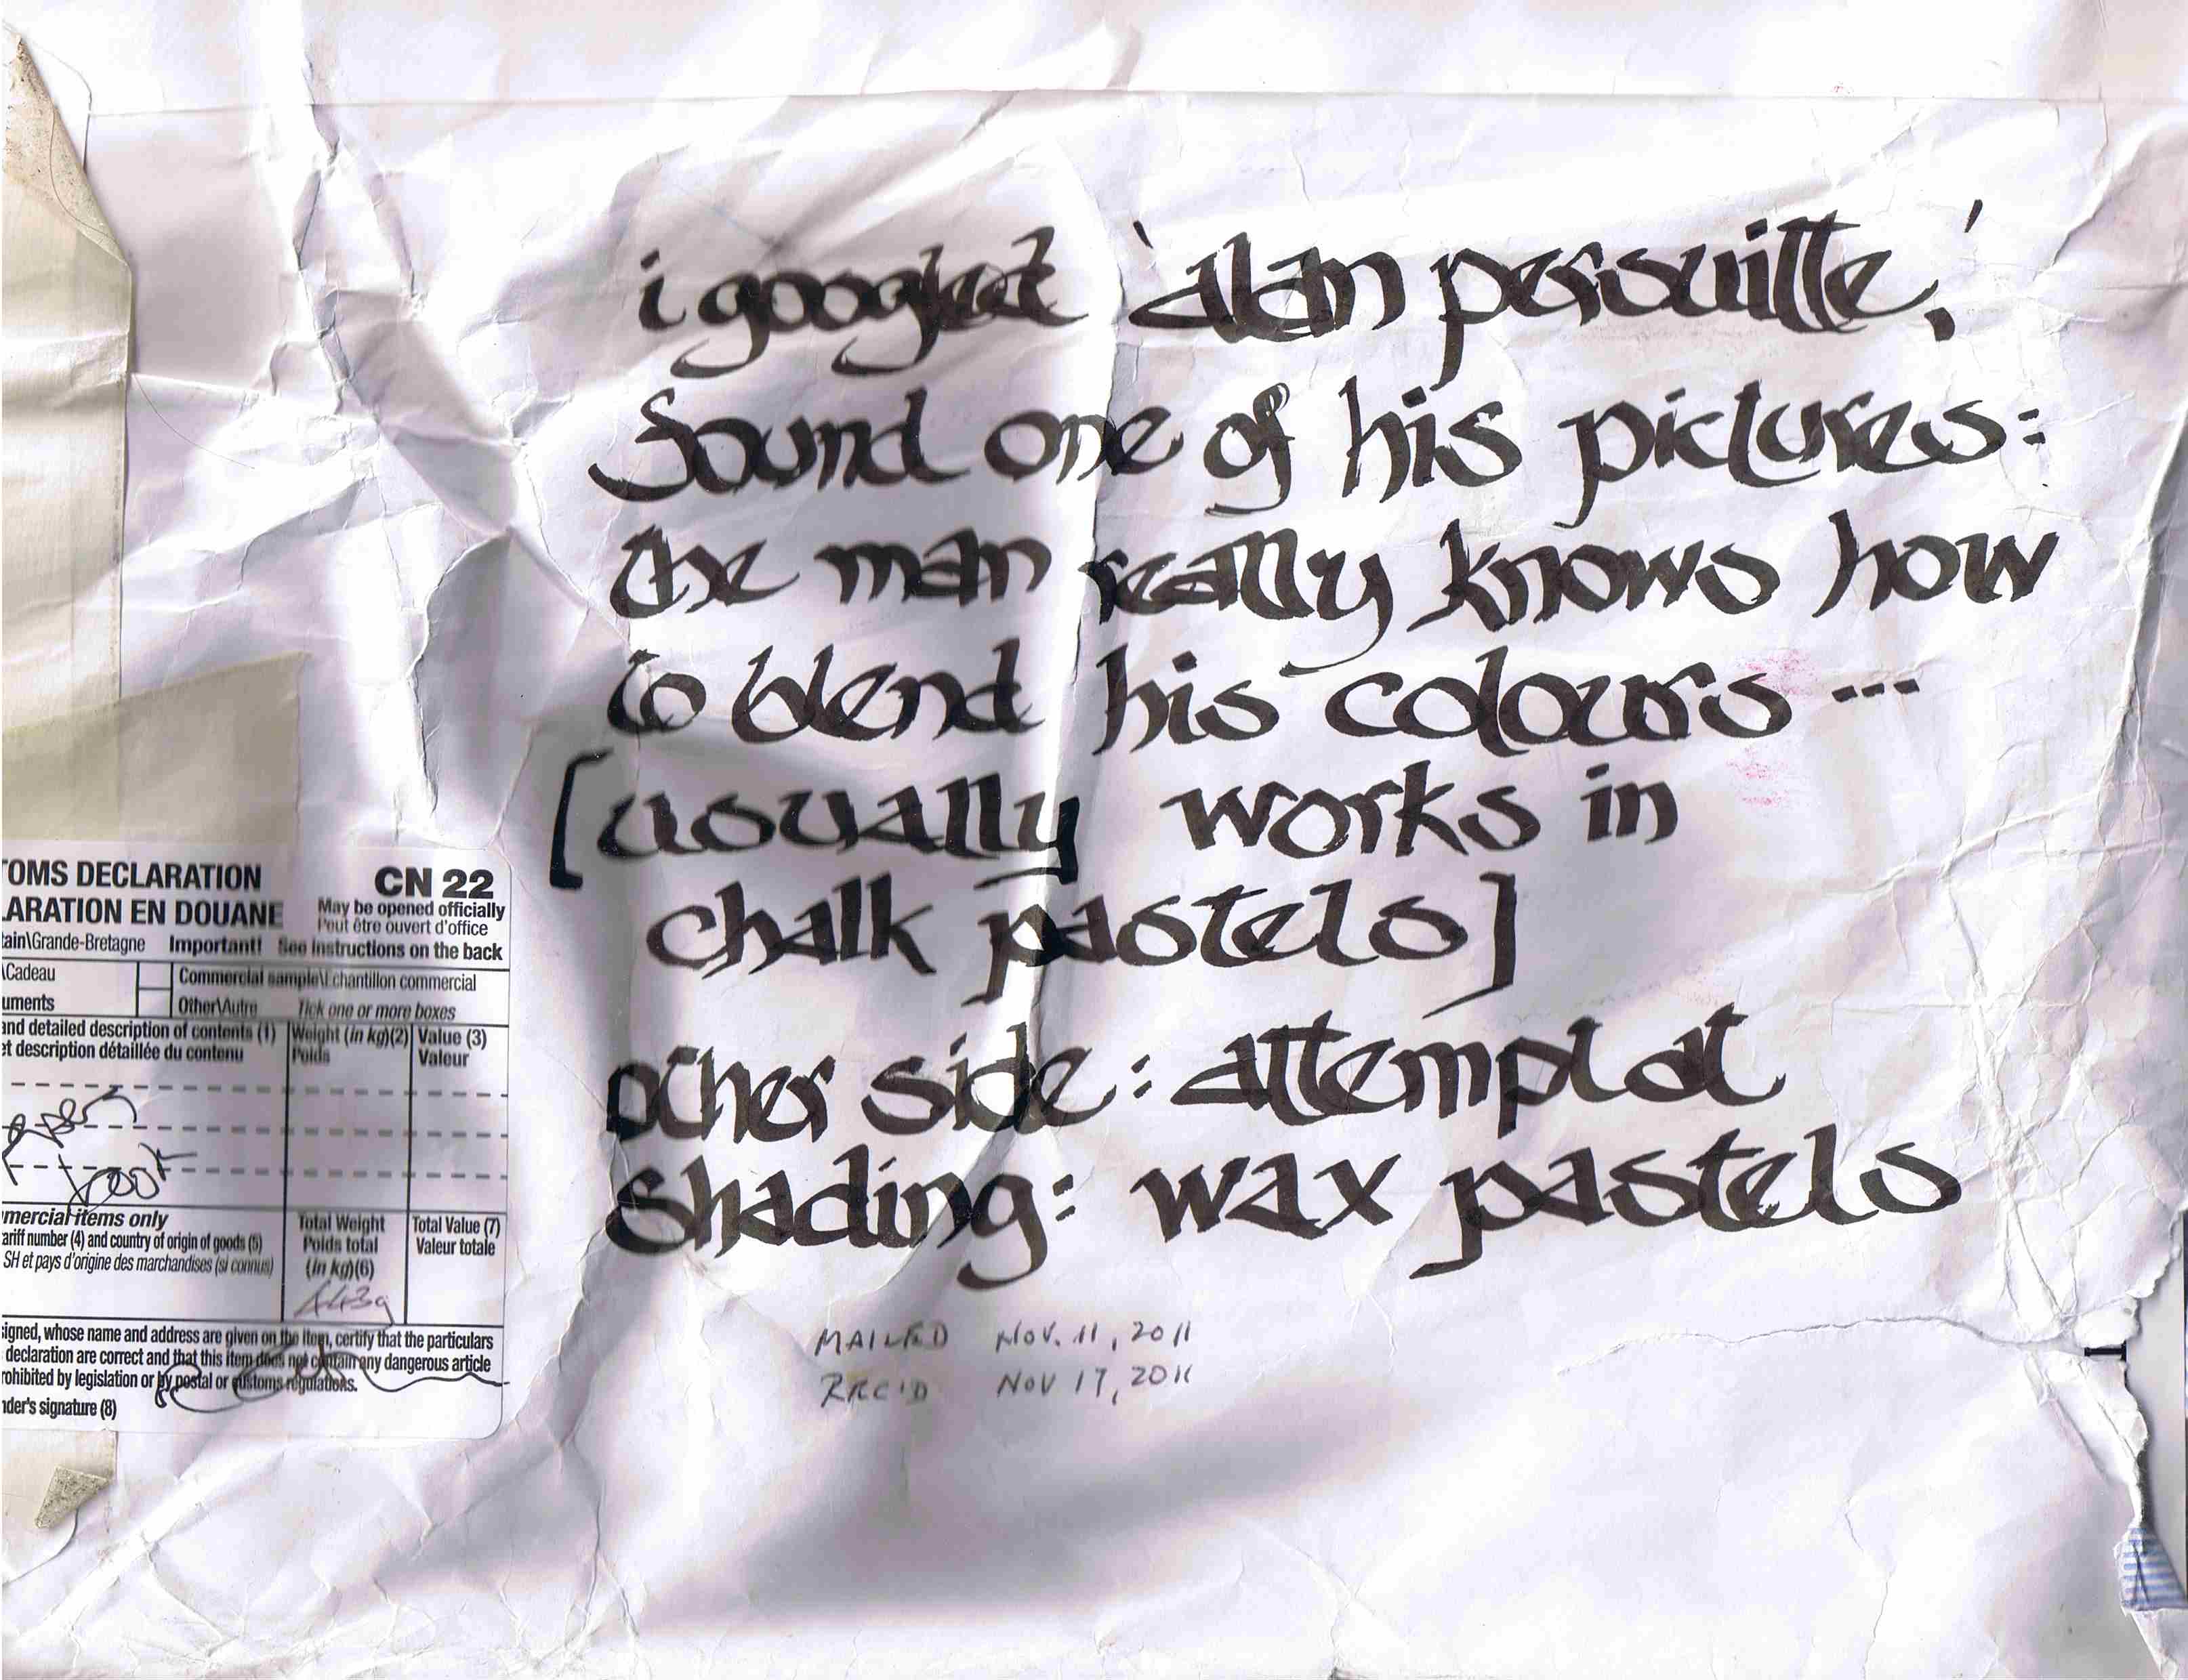 i googled 'alan perouitte,'
found one of his pictures:
the man really knows how
to blend his colours ...
[usually works in
chalk pastels]
other side : attempt at
shading: wax pastels
MAILED NOV. 11, 2011
REC'D NOV 17, 2011
OMS DECLARATION CN 22
ARATION EN DOUANE May be opened officially
Peut être ouvert d'office
tain\Grande-Bretagne Important! See instructions on the back
\Cadeau Commercial sample\Echantillon commercial
uments Other\Autre Tick one or more boxes
and detailed description of contents (1) Weight (in kg)(2) Value (3)
et description détaillée du contenu Poids Valeur
book
mercial items only Total Weight Total Value (7)
ariff number (4) and country of origin of goods (5) Poids total Valeur totale
SH et pays d'origine des marchandises (si connus) (in kg)(6)
signed, whose name and address are given on the item, certify that the particulars
declaration are correct and that this item does not contain any dangerous article
rohibited by legislation or by postal or customs regulations.
nder's signature (8)